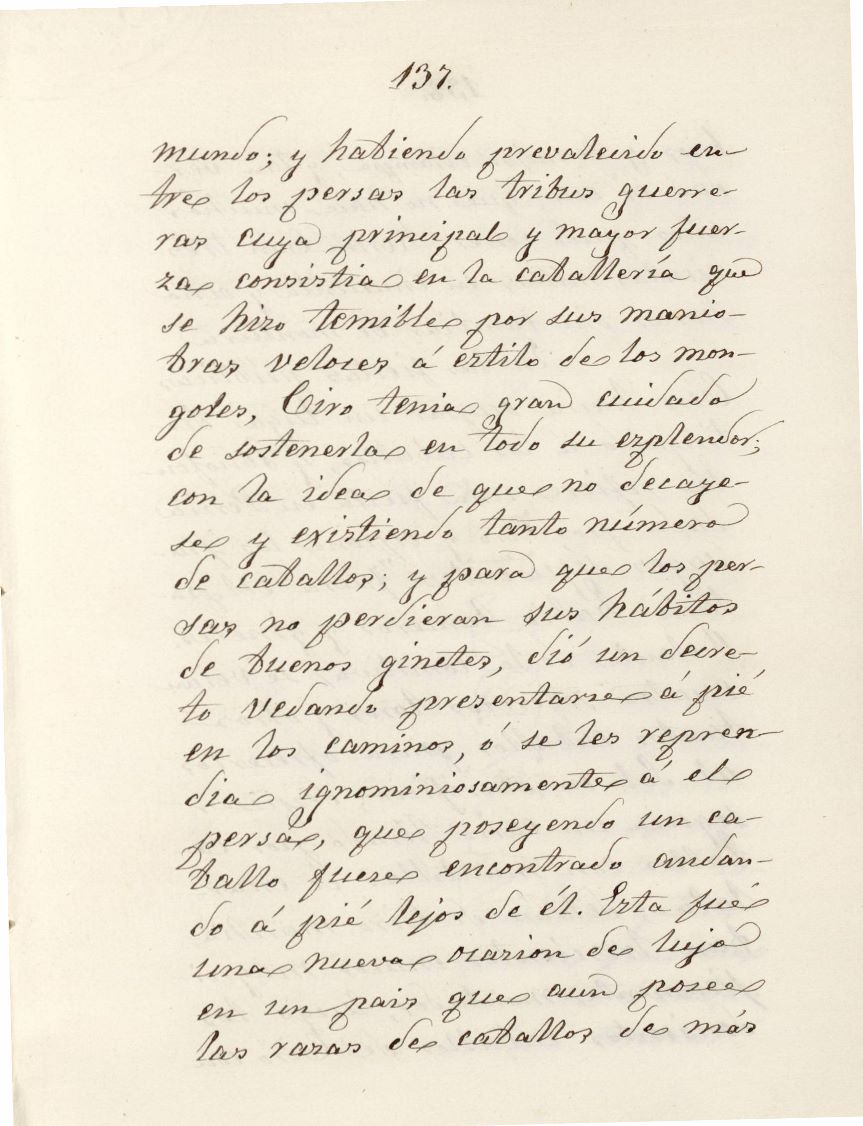 137.
mundo; y habiendo prevalecido en-
tre los persas las tribus guerre-
ras cuya principal y mayor fuer-
za consistia en la caballería que
se hizo temible por sus manio-
bras veloces á estilo de los mon-
goles, Ciro tenia gran cuidado
de sostenerla en todo su ezplendor;
con la idea de que no decaye-
se y existiendo tanto número
de caballos; y para que los per-
sas no perdieran sus hábitos
de buenos ginetes, dió un decre-
to vedando presentarse á pié
en los caminos, ó se les repren-
dia ignominiosamente á el
persa, que poseyendo un ca-
ballo fuese encontrado andan-
do á pié lejos de él. Esta fué
una nueva ocasion de lujo
en un pais que aun posee
las razas de caballos de más